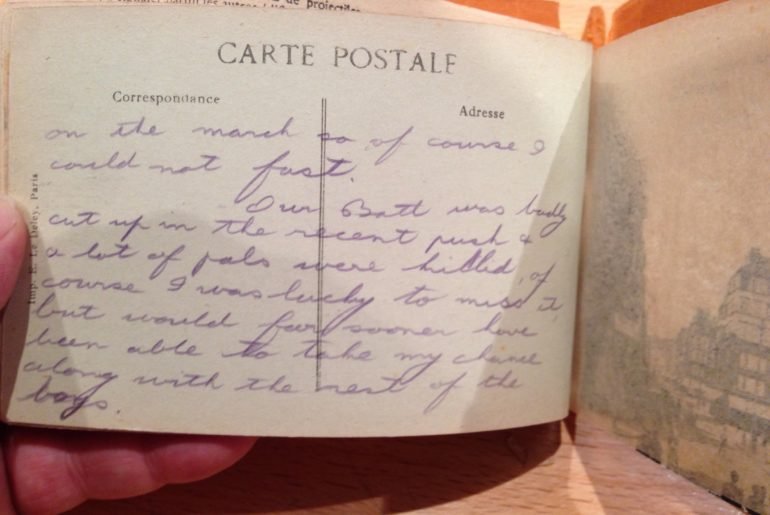 de projectiles
CARTE POSTALE
Correspondance
Adresse
on the march so of course I
could not fast.
Our Batt was badly
cut up in the recent push &
a lot of pals were killed, of
course I was lucky to miss it,
but would far sooner have
been able to take my chance
along with the rest of the
boys.
Imp. E. Le Deley, Paris